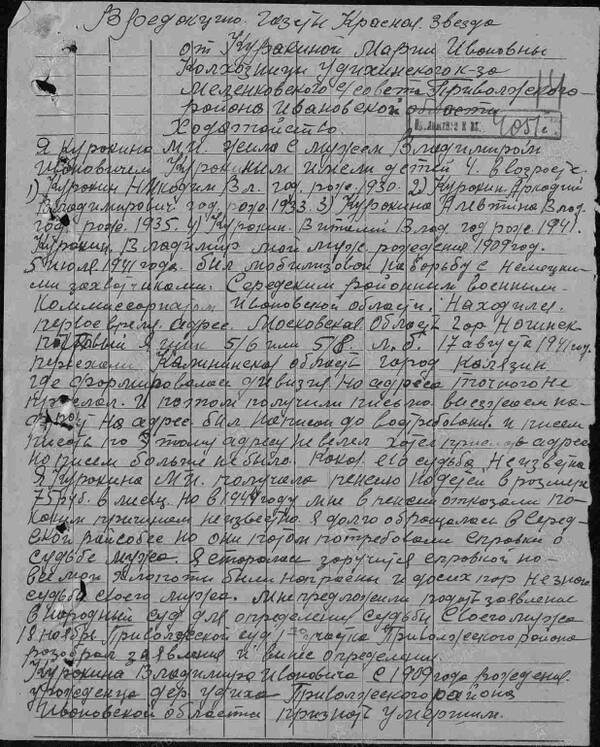 В редокцию газеты Красноя Звезда
от Курокиной Марии Ивоновны
Колхозницы Удихинского к-за
Меленковского с/совета Приволжского
района Ивоновской области
Ходотойство
4051с
Я Курокина М.И. жила с мужем Владимиром
Ивоновичем Курокиным имели детей 4. в возросте
1) Курокин Никодим Вл. год. рож. 1930. 2) Курокин Аркодий
Владимирович год. рож. 1933. 3) Курокина Алевтина Влад.
год. рож. 1935. 4) Курокин. Виталий Влад. год рож. 1941.
Курокин. Владимир мой муж. рождения 1909 год.
5 июля 1941 года. был мобилизовон на борьбу с немецки-
ми зохвотчиками. Середским районным военным-
Коммиссориатом Ивоновской области. Находился
первое время. адрес. Московская Область гор Ногинск
почтовый ящик 5/6 или 5/8. л. б. 17 августа 1941 год.
переехали Калининская область город Калязин
где формировалась дивизия но адреса точного не
прислал. И потом получили письмо выезжаем на
фронт но адрес был написон до востребовон. и писем
писать по этому адресу не велел хотел прислать адрес
но писем больше не было. Какая его судьба неизвестна
Я Курокина М.И. получала пенсию на детей в розмере
75 руб. в месяц. но в 1944 году мне в пенсии отказали по
каким причинам неизвестно. Я долго обращалась в Серед-
ской райсобес но они потом потребовали спровки о
судьбе мужа. Я старолась заручится спровкой но
все мои хлопоты были напрасны и до сих пор не знаю
судьбы своего мужа. Мне предложили подать заявление
в народный суд для определения судьбы своего мужа
18 ноября Приволжской суд 1 участка Приволжского района
розобрал заявления и вынес определения.
Курокина Владимира Ивоновича с 1909 года рождения.
уроженца дер. Удиха Приволжского района
Ивоновской области признать умершим.